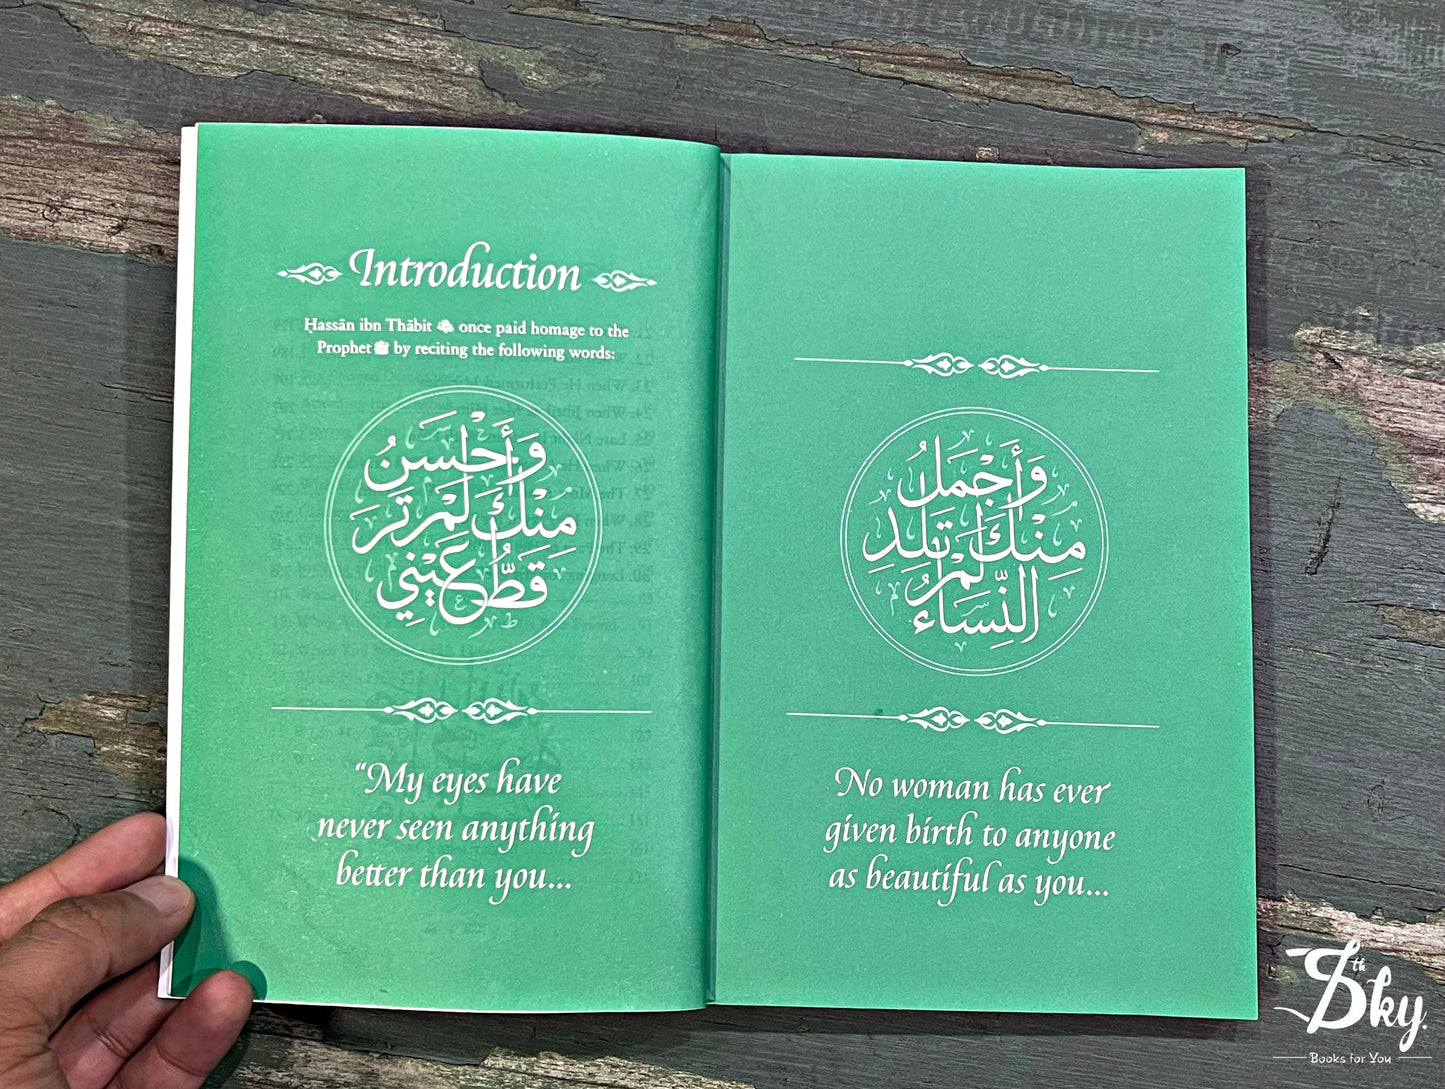 Introduction
Ḥassān ibn Thābit once paid homage to the
Prophet ﷺ by reciting the following words:
وَأَحْسَنُ
مِنْكَ لَمْ تَرَ
قَطُّ عَيْنِي
“My eyes have
never seen anything
better than you...
وَأَجْمَلُ
مِنْكَ لَمْ تَلِدِ
النِّسَاءُ
No woman has ever
given birth to anyone
as beautiful as you...
7th Sky.
Books for You